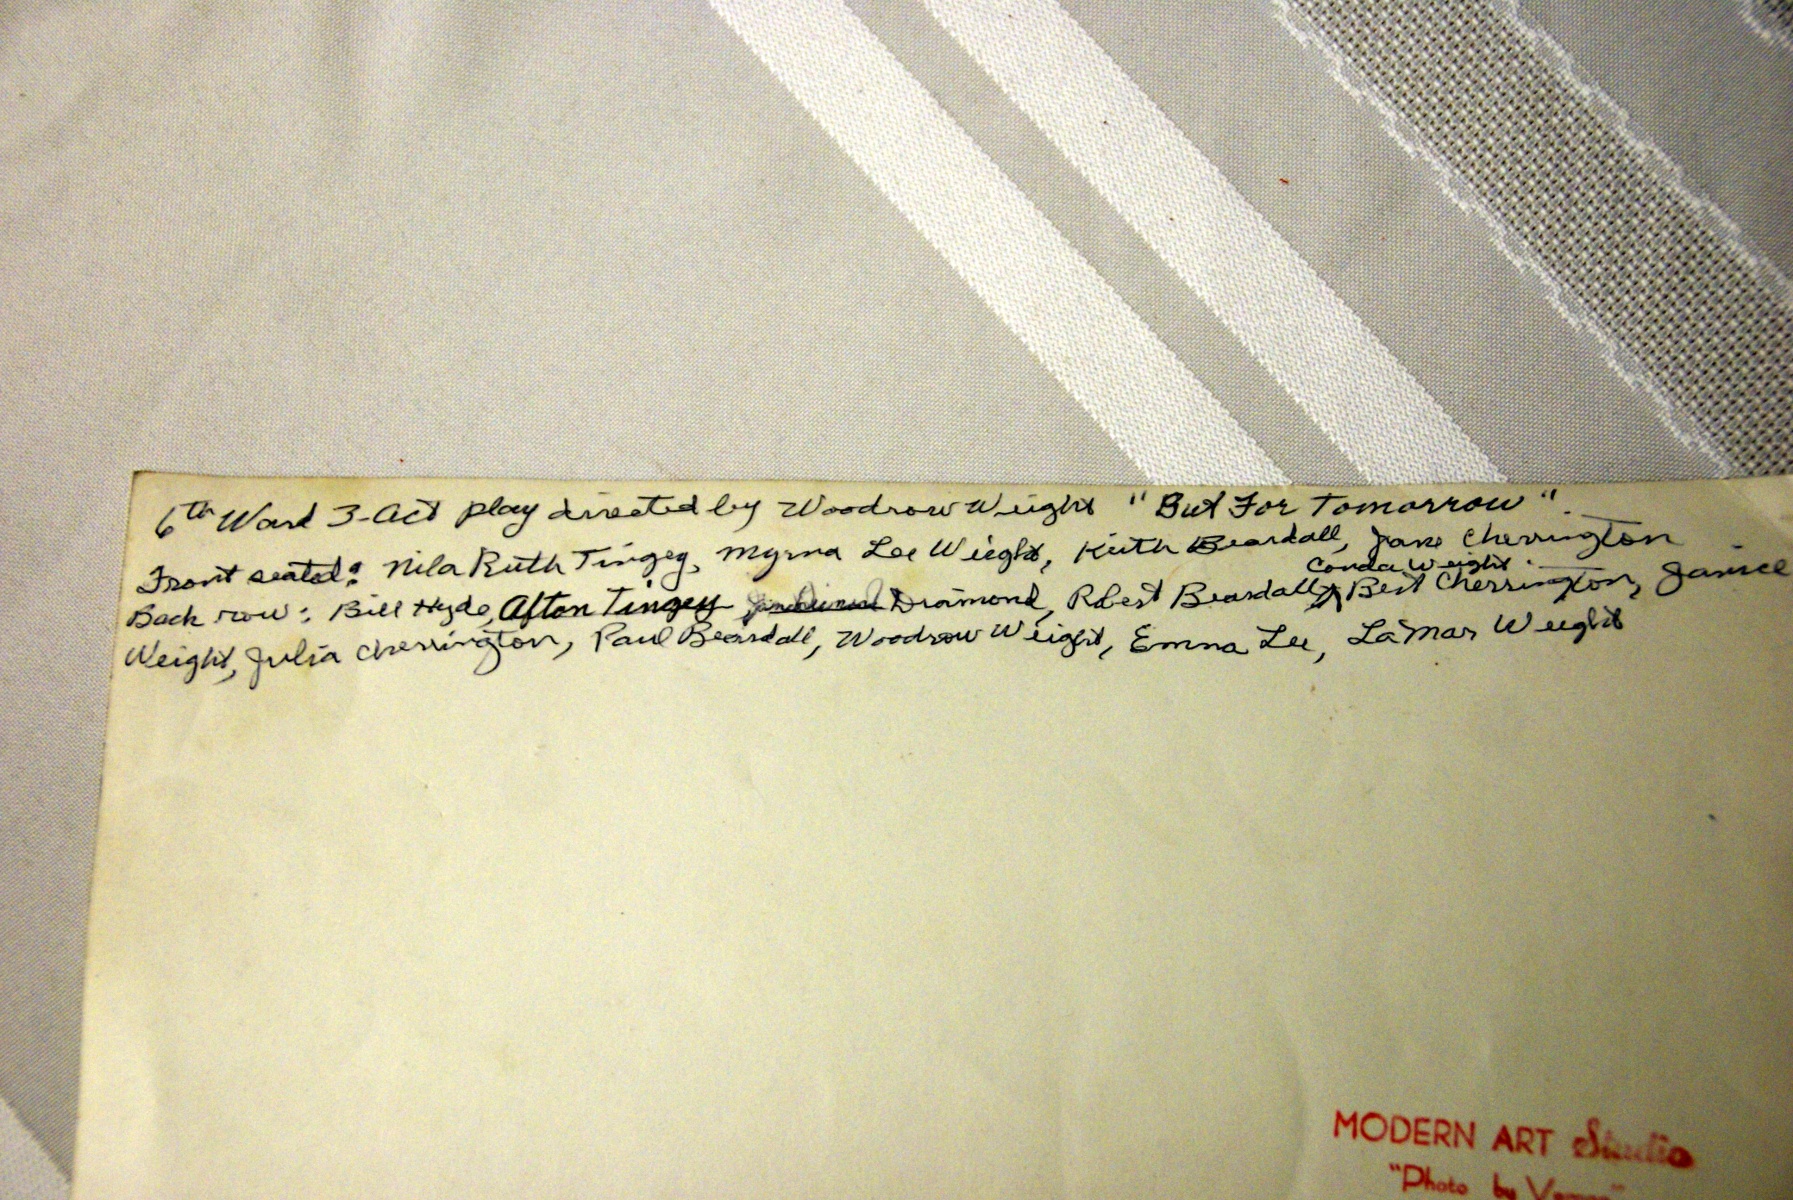 6th Ward 3-Act play directed by Woodrow Weight "But For Tomorrow".
Front seated: Nila Ruth Tingey, Myrna Lee Weight, Keith Beardall, Jane Cherrington
Conda Weight
Back row: Bill Hyde, Afton Tingey Diamond, Robert Beardall, Bert Cherrington, Janice
Weight, Julia Cherrington, Paul Beardall, Woodrow Weight, Emma Lee, LaMar Weight
MODERN ART Studio
"Photo by